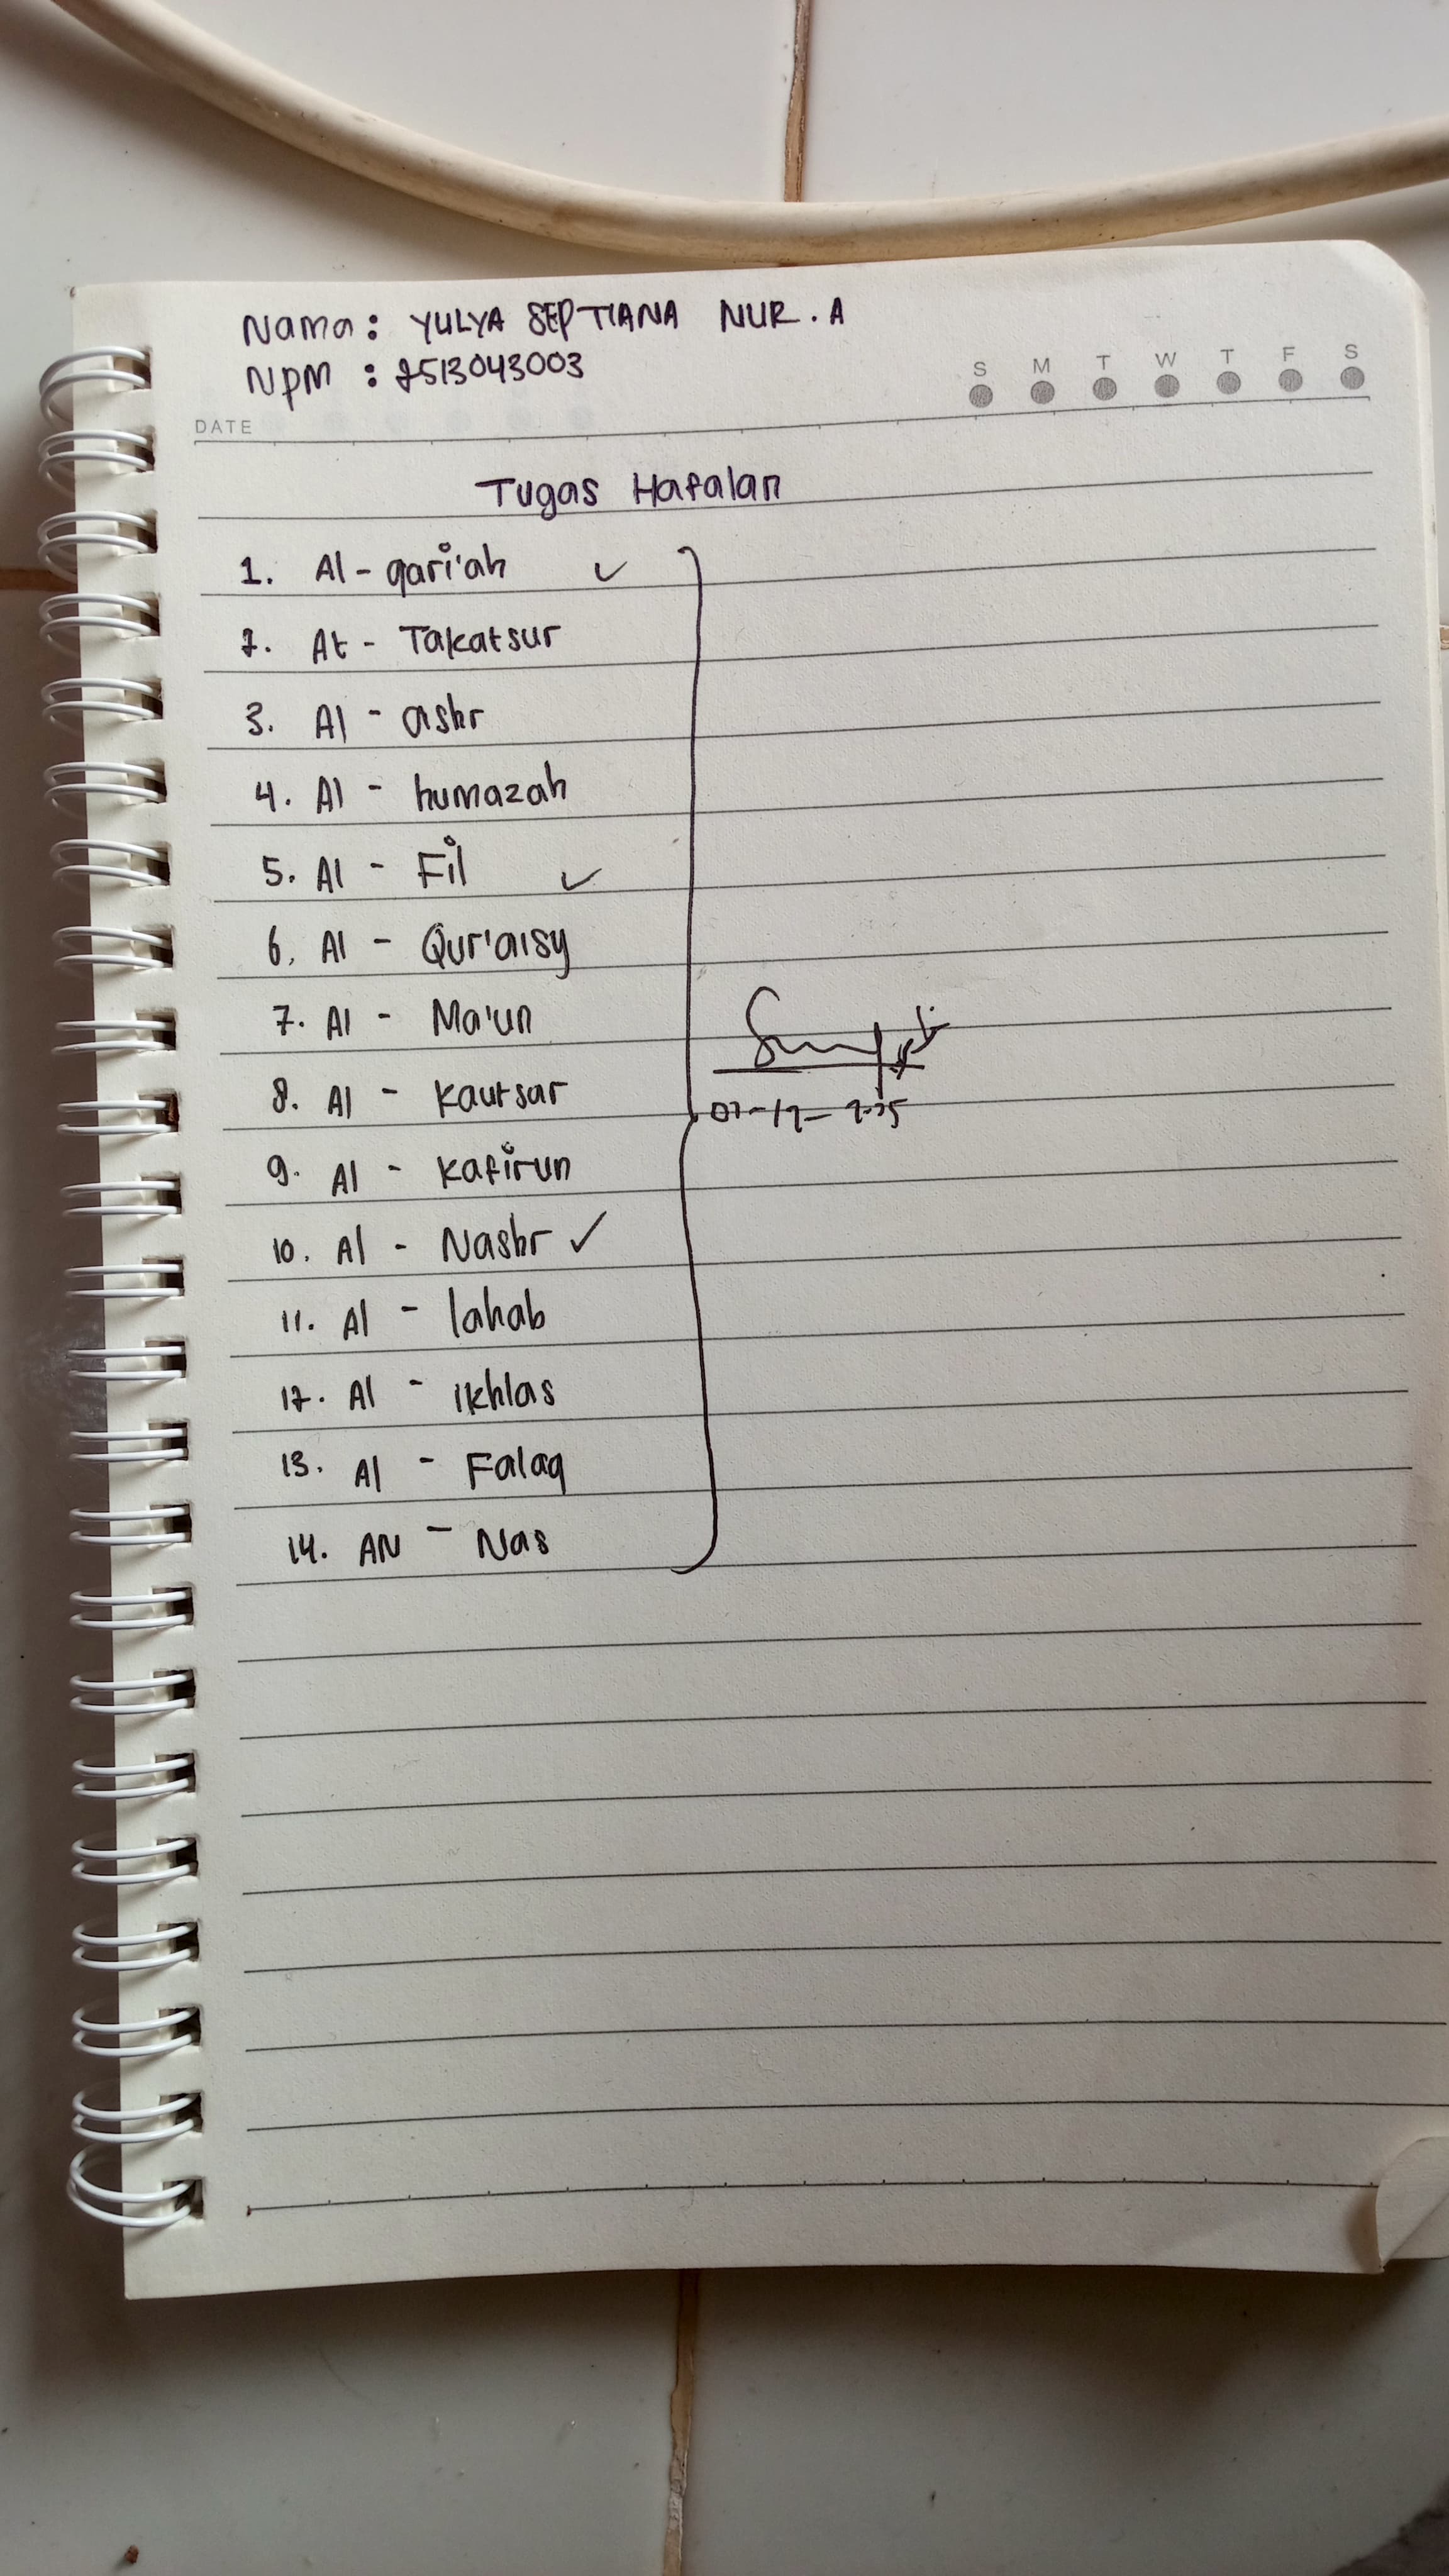 Nama : YULYA SEPTIANA NUR . A
NPM : 2513043003
S M T W T F S
DATE
Tugas Hafalan
1. Al - qari'ah ✓
2. At - Takatsur
3. Al - ashr
4. Al - humazah
5. Al - Fil ✓
6. Al - Qur'aisy
7. Al - Ma'un
8. Al - Kautsar
9. Al - Kafirun
10. Al - Nashr ✓
11. Al - lahab
12. Al - Ikhlas
13. Al - Falaq
14. AN - Nas